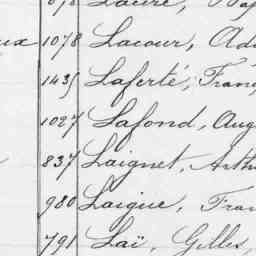 1078 Lacour, Ad
1435 Laferté, Fran
1027 Lafond, Aug
837 Laignet, Arth
980 Laigue, Fran
791 Laï, Gilles,